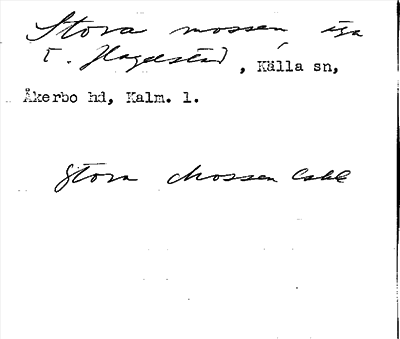 Stora mossen, äga
t. Hagelstad, Källa sn,
Åkerbo hd, Kalm. l.
Stora Mossen